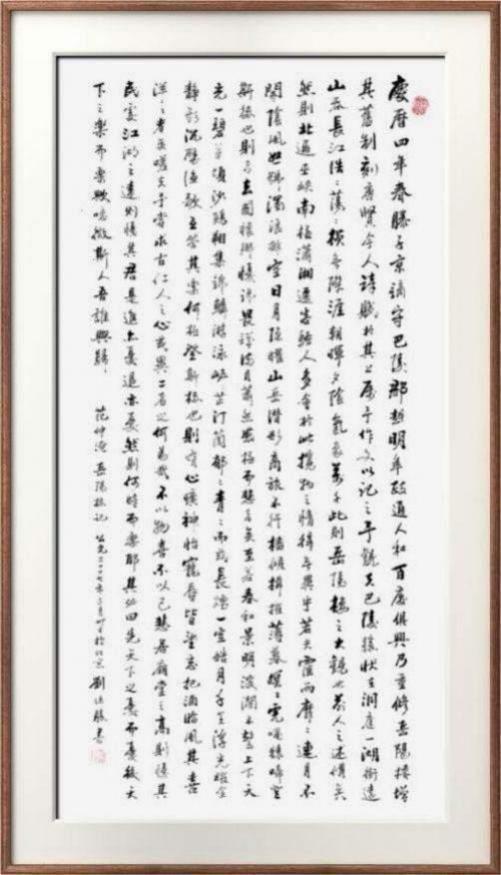 慶曆四年春滕子京謫守巴陵郡越明年政通人和百廢俱興乃重修岳陽樓增
其舊制刻唐賢今人詩賦於其上屬予作文以記之予觀夫巴陵勝狀在洞庭一湖銜遠
山吞長江浩〻蕩〻橫無際涯朝暉夕陰氣象萬千此則岳陽樓之大觀也前人之述備矣
然則北通巫峽南極瀟湘遷客騷人多會於此攬物之情得無異乎若夫霪雨霏〻連月不
開陰風怒號濁浪排空日月隱曜山岳潛形商旅不行檣傾楫摧薄暮冥〻虎嘯猿啼登
斯樓也則有去國懷鄉憂讒畏譏滿目蕭然感極而悲者矣至若春和景明波瀾不驚上下天
光一碧萬頃沙鷗翔集錦鱗游泳岸芷汀蘭郁〻青〻而或長煙一空皓月千里浮光耀金
靜影沉璧漁歌互答其樂何極登斯樓也則有心曠神怡寵辱皆忘把酒臨風其喜
洋〻者矣嗟夫予嘗求古仁人之心或異二者之為何哉不以物喜不以己悲居廟堂之高則憂其
民處江湖之遠則憂其君是進亦憂退亦憂然則何時而樂耶其必曰先天下之憂而憂後天
下之樂而樂歟噫微斯人吾誰與歸 范仲淹岳陽樓記 公元二〇〇七年 於北京 劉 書